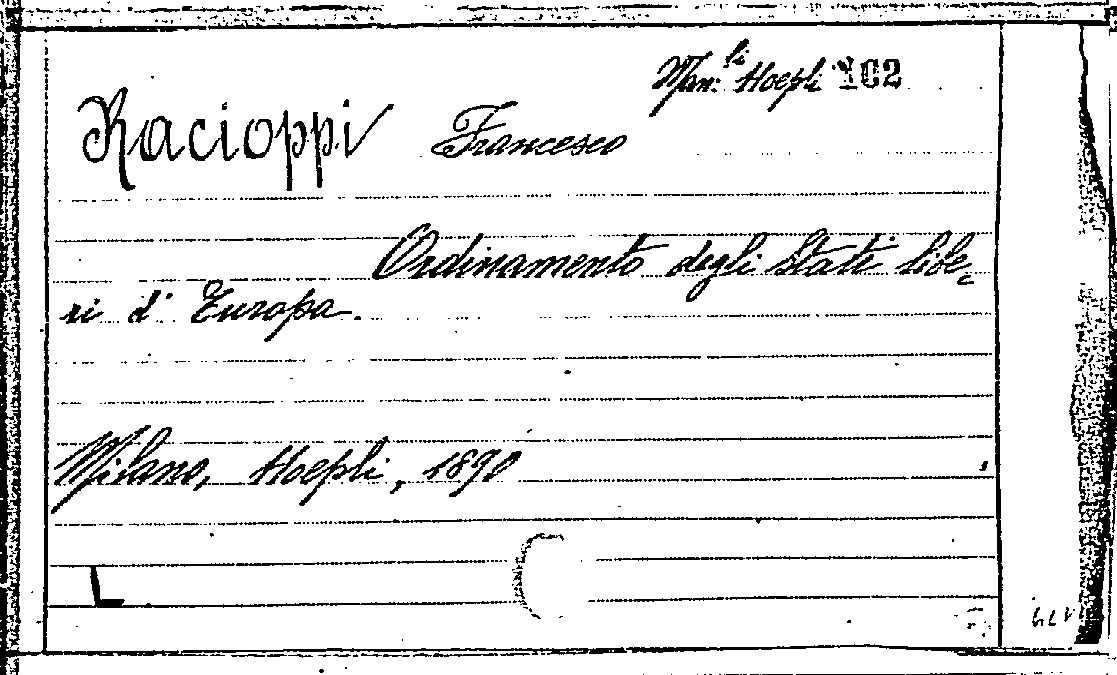 Man.li Hoepli 102
Racioppi Francesco
Ordinamento degli Stati libe-
ri d'Europa.
Milano, Hoepli, 1890